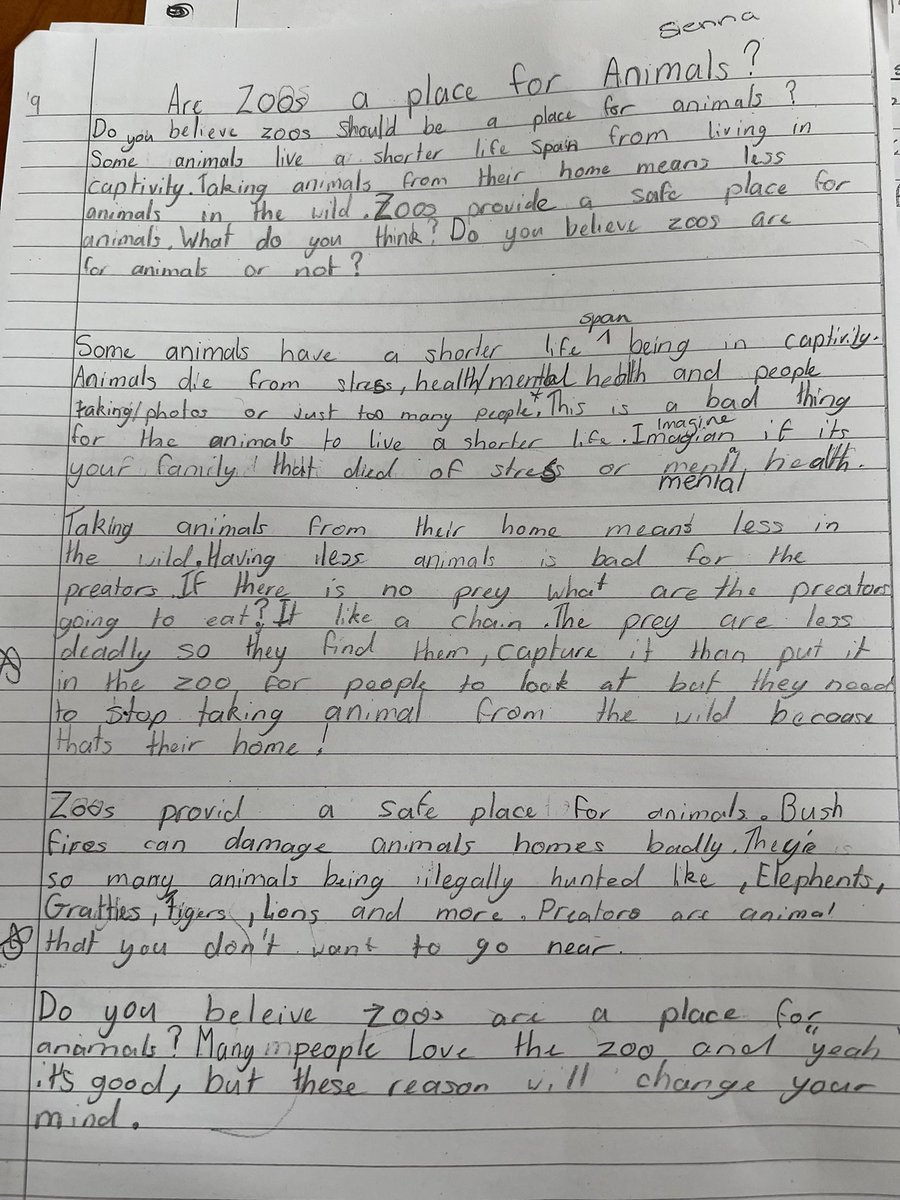 Sienna
Are Zoos a place for Animals?
Do you believe zoos should be a place for animals?
Some animals live a shorter life span from living in
captivity. Taking animals from their home means less
animals in the wild. Zoos provide a safe place for
animals. What do you think? Do you believe zoos are
for animals or not?
Some animals have a shorter life span being in captivity.
Animals die from stress, health/mental health and people
taking/photos or just too many people. This is a bad thing
for the animals to live a shorter life. Imagian Imagine if its
your family that died of stress or mental health.
Taking animals from their home means less in
the wild. Having less animals is bad for the
preators. If there is no prey what are the preators
going to eat? It like a chain. The prey are less
deadly so they find them, capture it than put it
in the zoo for people to look at but they need
to stop taking animal from the wild becaase
thats their home!
Zoos provid a safe place for animals. Bush
fires can damage animals homes badly. They're
so many animals being illegally hunted like, Elephents,
Gratties, tigers, Lions and more. Preators are animal
that you don't want to go near.
Do you beleive zoos are a place for
anamals? Many people Love the zoo and "yeah
it's good, but these reason will change your
mind.